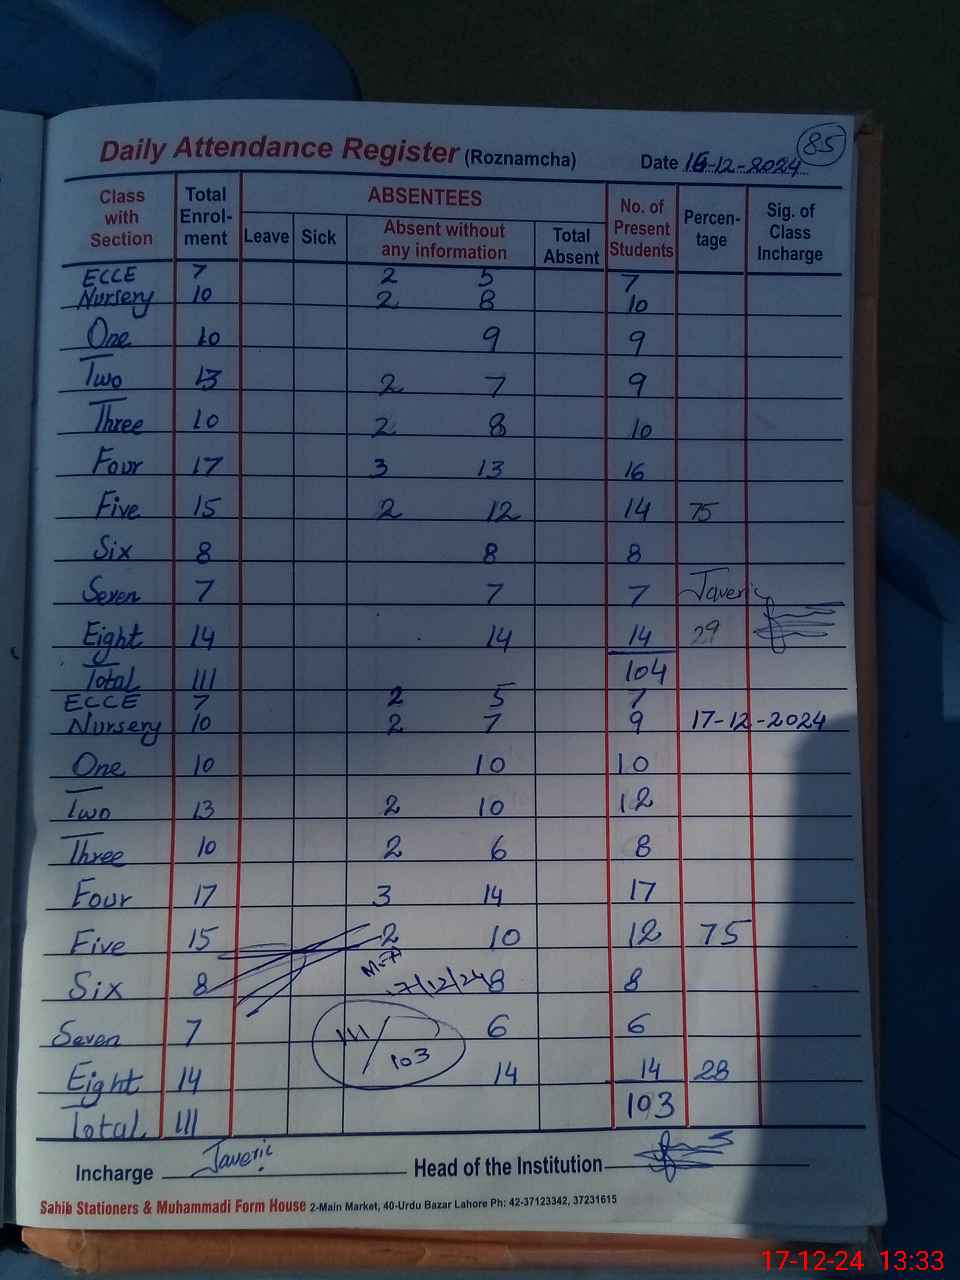 85
Daily Attendance Register (Roznamcha) Date 16-12-2024
Class with Section Total Enrol-ment ABSENTEES No. of Present Students Percen-tage Sig. of Class Incharge
Leave Sick Absent without any information Total Absent
ECCE 7 2 5 7
Nursery 10 2 8 10
One 10 9 9
Two 13 2 7 9
Three 10 2 8 10
Four 17 3 13 16
Five 15 2 12 14 75
Six 8 8 8
Seven 7 7 7 Javeric
Eight 14 14 14 29
Total 111 104
ECCE 7 2 5 7
Nursery 10 2 7 9 17-12-2024
One 10 10 10
Two 13 2 10 12
Three 10 2 6 8
Four 17 3 14 17
Five 15 2 10 12 75
Six 8 8 8
17/12/24
Seven 7 6 6
111/103
Eight 14 14 14 28
Total 111 103
Incharge Javeric Head of the Institution
Sahib Stationers & Muhammadi Form House 2-Main Market, 40-Urdu Bazar Lahore Ph: 42-37123342, 37231615
17-12-24 13:33